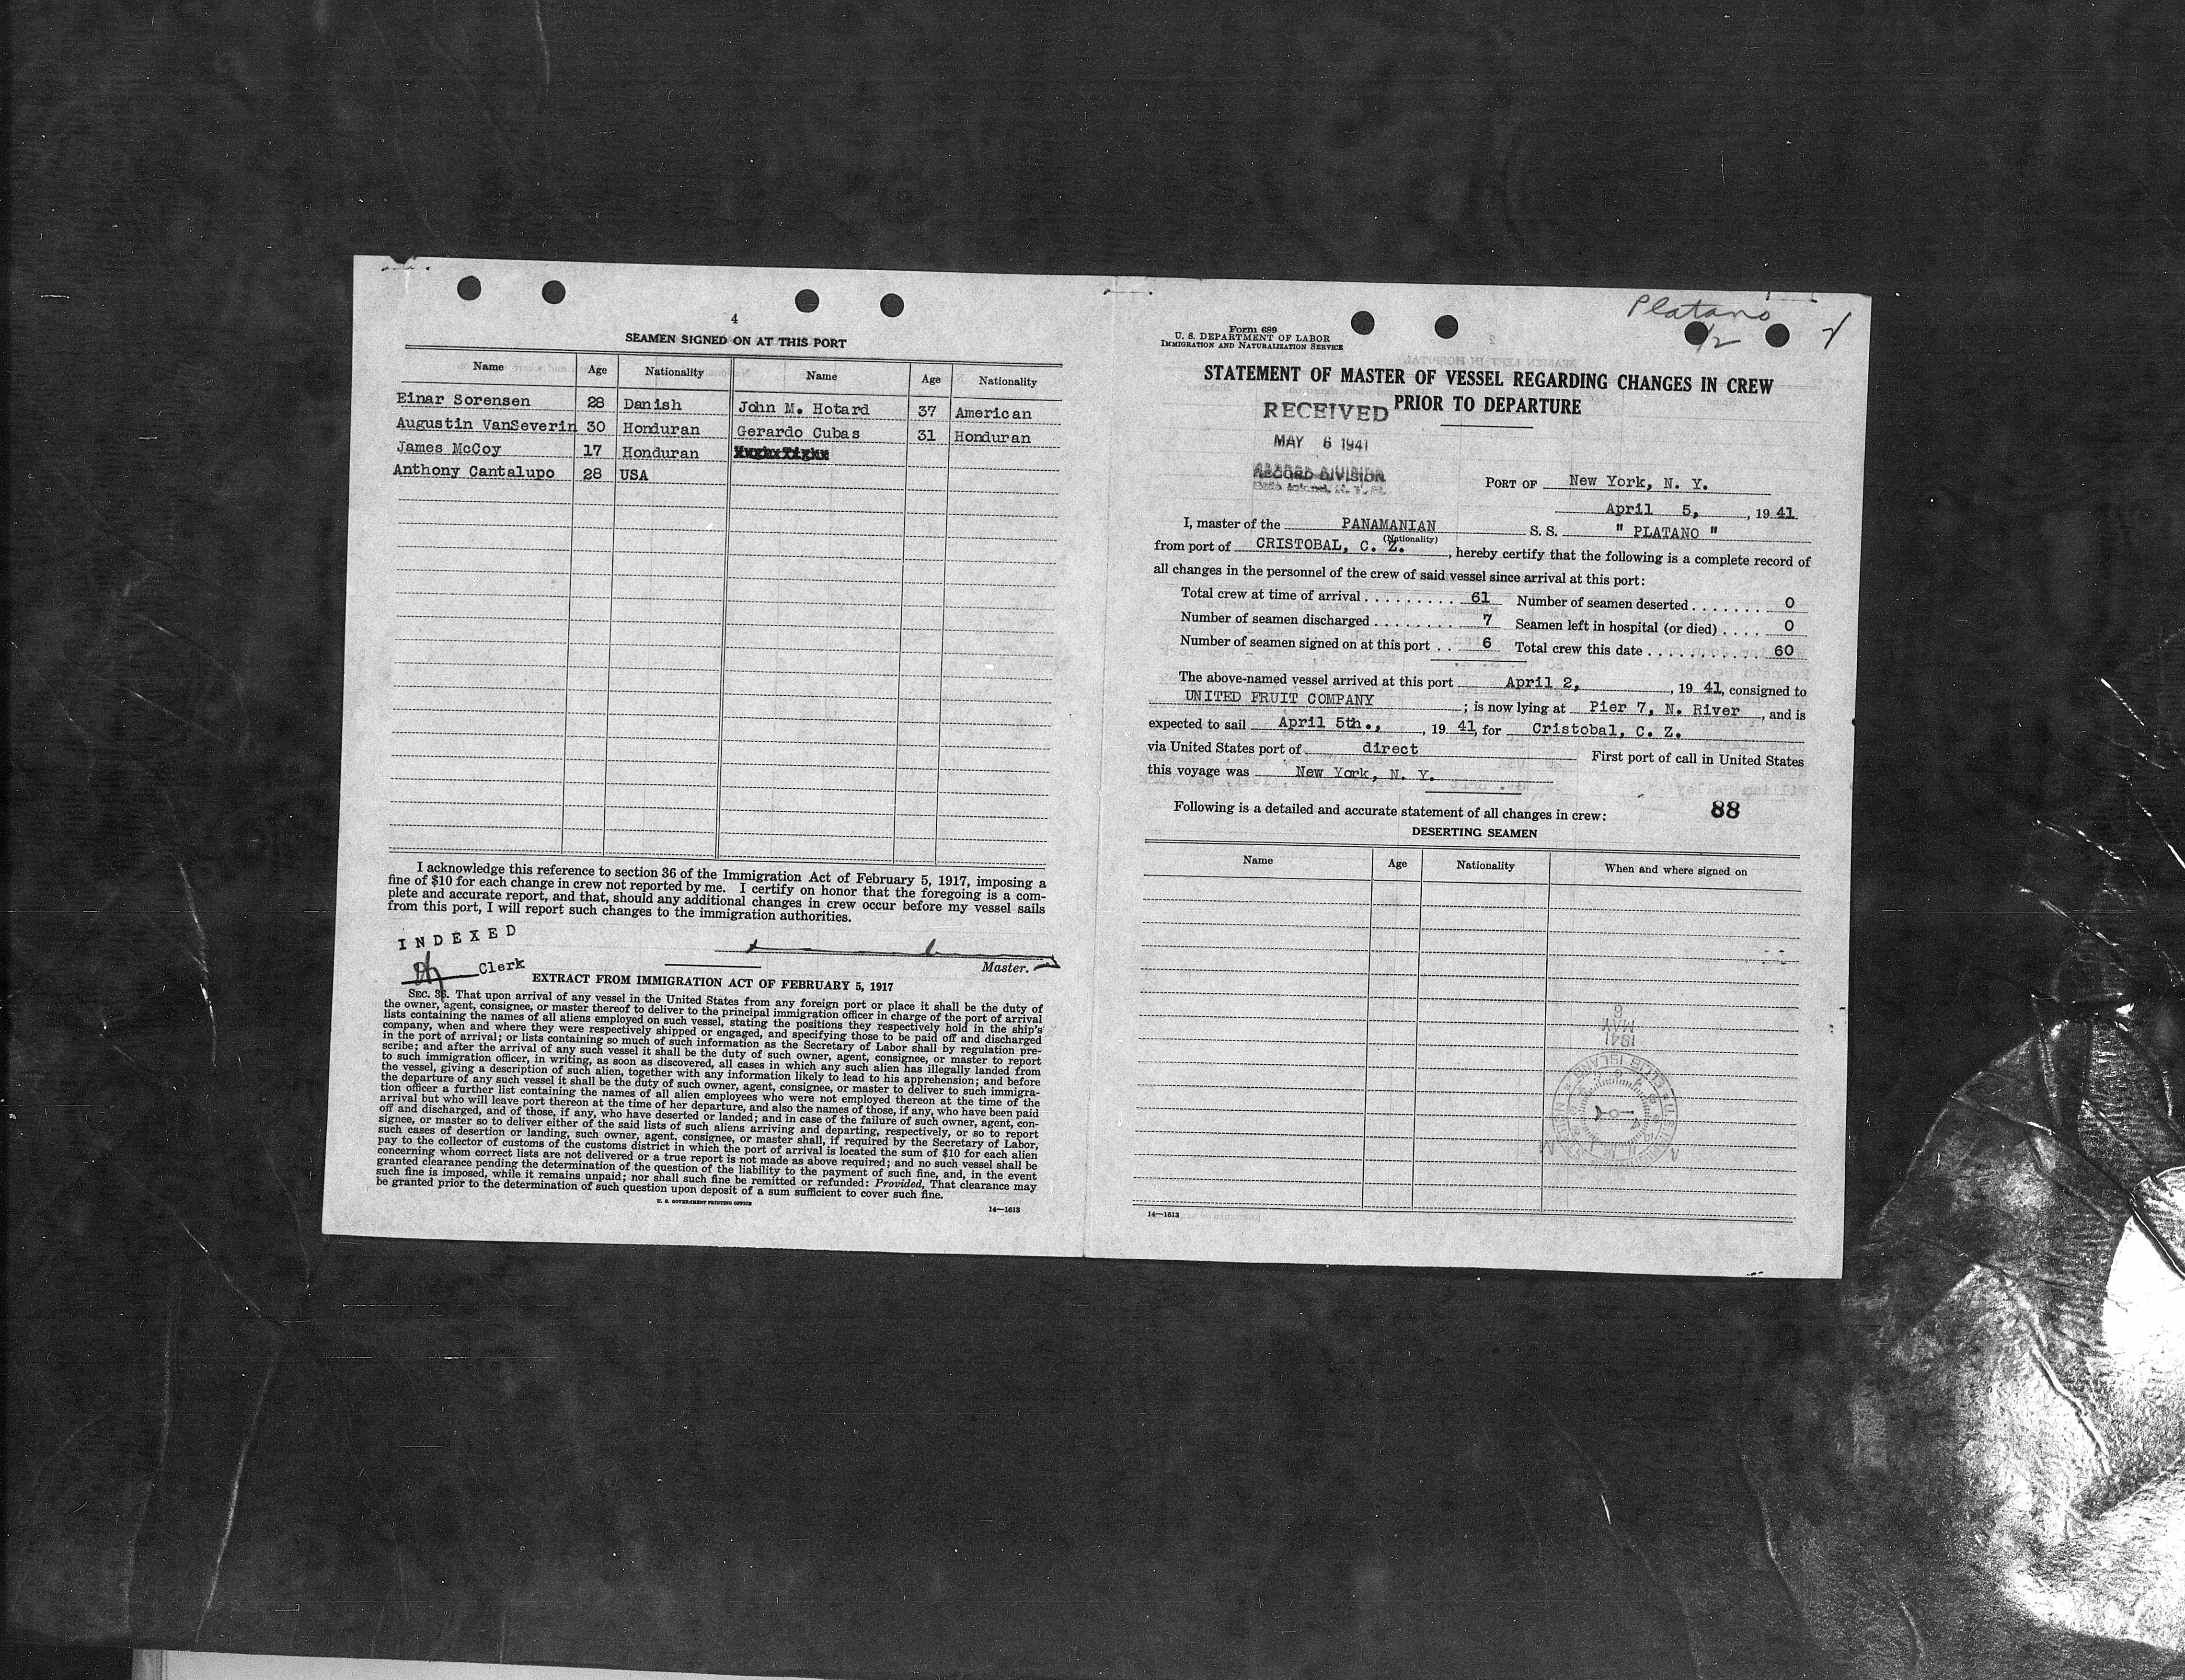 4
SEAMEN SIGNED ON AT THIS PORT
Name Age Nationality Name Age Nationality
Einar Sorensen 28 Danish John M. Hotard 37 American
Augustin VanSeverin 30 Honduran Gerardo Cubas 31 Honduran
James McCoy 17 Honduran
Anthony Cantalupo 28 USA
I acknowledge this reference to section 36 of the Immigration Act of February 5, 1917, imposing a
fine of $10 for each change in crew not reported by me. I certify on honor that the foregoing is a com-
plete and accurate report, and that, should any additional changes in crew occur before my vessel sails
from this port, I will report such changes to the immigration authorities.
INDEXED
Clerk
Master.
EXTRACT FROM IMMIGRATION ACT OF FEBRUARY 5, 1917
SEC. 36. That upon arrival of any vessel in the United States from any foreign port or place it shall be the duty of
the owner, agent, consignee, or master thereof to deliver to the principal immigration officer in charge of the port of arrival
lists containing the names of all aliens employed on such vessel, stating the positions they respectively hold in the ship's
company, when and where they were respectively shipped or engaged, and specifying those to be paid off and discharged
in the port of arrival; or lists containing so much of such information as the Secretary of Labor shall by regulation pre-
scribe; and after the arrival of any such vessel it shall be the duty of such owner, agent, consignee, or master to report
to such immigration officer, in writing, as soon as discovered, all cases in which any such alien has illegally landed from
the vessel, giving a description of such alien, together with any information likely to lead to his apprehension; and before
the departure of any such vessel it shall be the duty of such owner, agent, consignee, or master to deliver to such immigra-
tion officer a further list containing the names of all alien employees who were not employed thereon at the time of the
arrival but who will leave port thereon at the time of her departure, and also the names of those, if any, who have been paid
off and discharged, and of those, if any, who have deserted or landed; and in case of the failure of such owner, agent, con-
signee, or master so to deliver either of the said lists of such aliens arriving and departing, respectively, or so to report
such cases of desertion or landing, such owner, agent, consignee, or master shall, if required by the Secretary of Labor,
pay to the collector of customs of the customs district in which the port of arrival is located the sum of $10 for each alien
concerning whom correct lists are not delivered or a true report is not made as above required; and no such vessel shall be
granted clearance pending the determination of the question of the liability to the payment of such fine, and, in the event
such fine is imposed, while it remains unpaid; nor shall such fine be remitted or refunded: Provided, That clearance may
be granted prior to the determination of such question upon deposit of a sum sufficient to cover such fine.
U. S. GOVERNMENT PRINTING OFFICE
14—1613
Platano
1/2
Form 689
U. S. DEPARTMENT OF LABOR
IMMIGRATION AND NATURALIZATION SERVICE
STATEMENT OF MASTER OF VESSEL REGARDING CHANGES IN CREW
PRIOR TO DEPARTURE
RECEIVED
MAY 6 1941
RECORD DIVISION
PORT OF New York, N. Y.
April 5, , 19 41
I, master of the PANAMANIAN S. S. " PLATANO "
(Nationality)
from port of CRISTOBAL, C. Z. , hereby certify that the following is a complete record of
all changes in the personnel of the crew of said vessel since arrival at this port:
Total crew at time of arrival . . . . . . . . . . 61 Number of seamen deserted . . . . . . . 0
Number of seamen discharged . . . . . . . . 7 Seamen left in hospital (or died) . . . . 0
Number of seamen signed on at this port . . 6 Total crew this date . . . . . . . . . . . 60
The above-named vessel arrived at this port April 2, , 19 41, consigned to
UNITED FRUIT COMPANY ; is now lying at Pier 7, N. River , and is
expected to sail April 5th., , 19 41, for Cristobal, C. Z.
via United States port of direct First port of call in United States
this voyage was New York, N. Y.
Following is a detailed and accurate statement of all changes in crew: 88
DESERTING SEAMEN
Name Age Nationality When and where signed on
14—1613